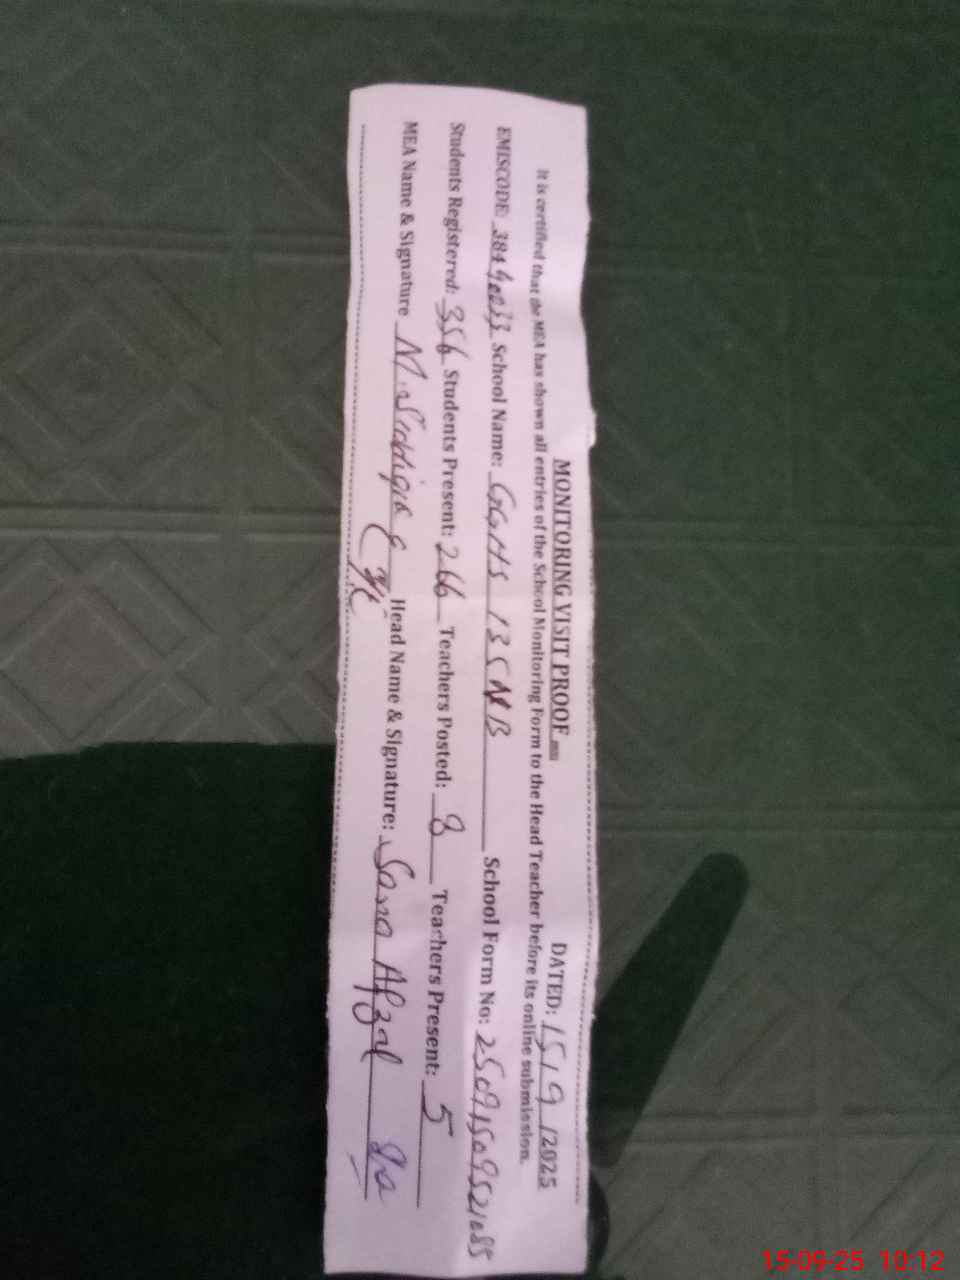 MONITORING VISIT PROOF DATED: 15/9/2025
It is certified that the MEA has shown all entries of the School Monitoring Form to the Head Teacher before its online submission.
EMISCODE: School Name: GGHS 135NB School Form No:
Students Registered: 356 Students Present: 266 Teachers Posted: 8 Teachers Present: 5
MEA Name & Signature Head Name & Signature: Sana Afzal
15-09-25 10:12